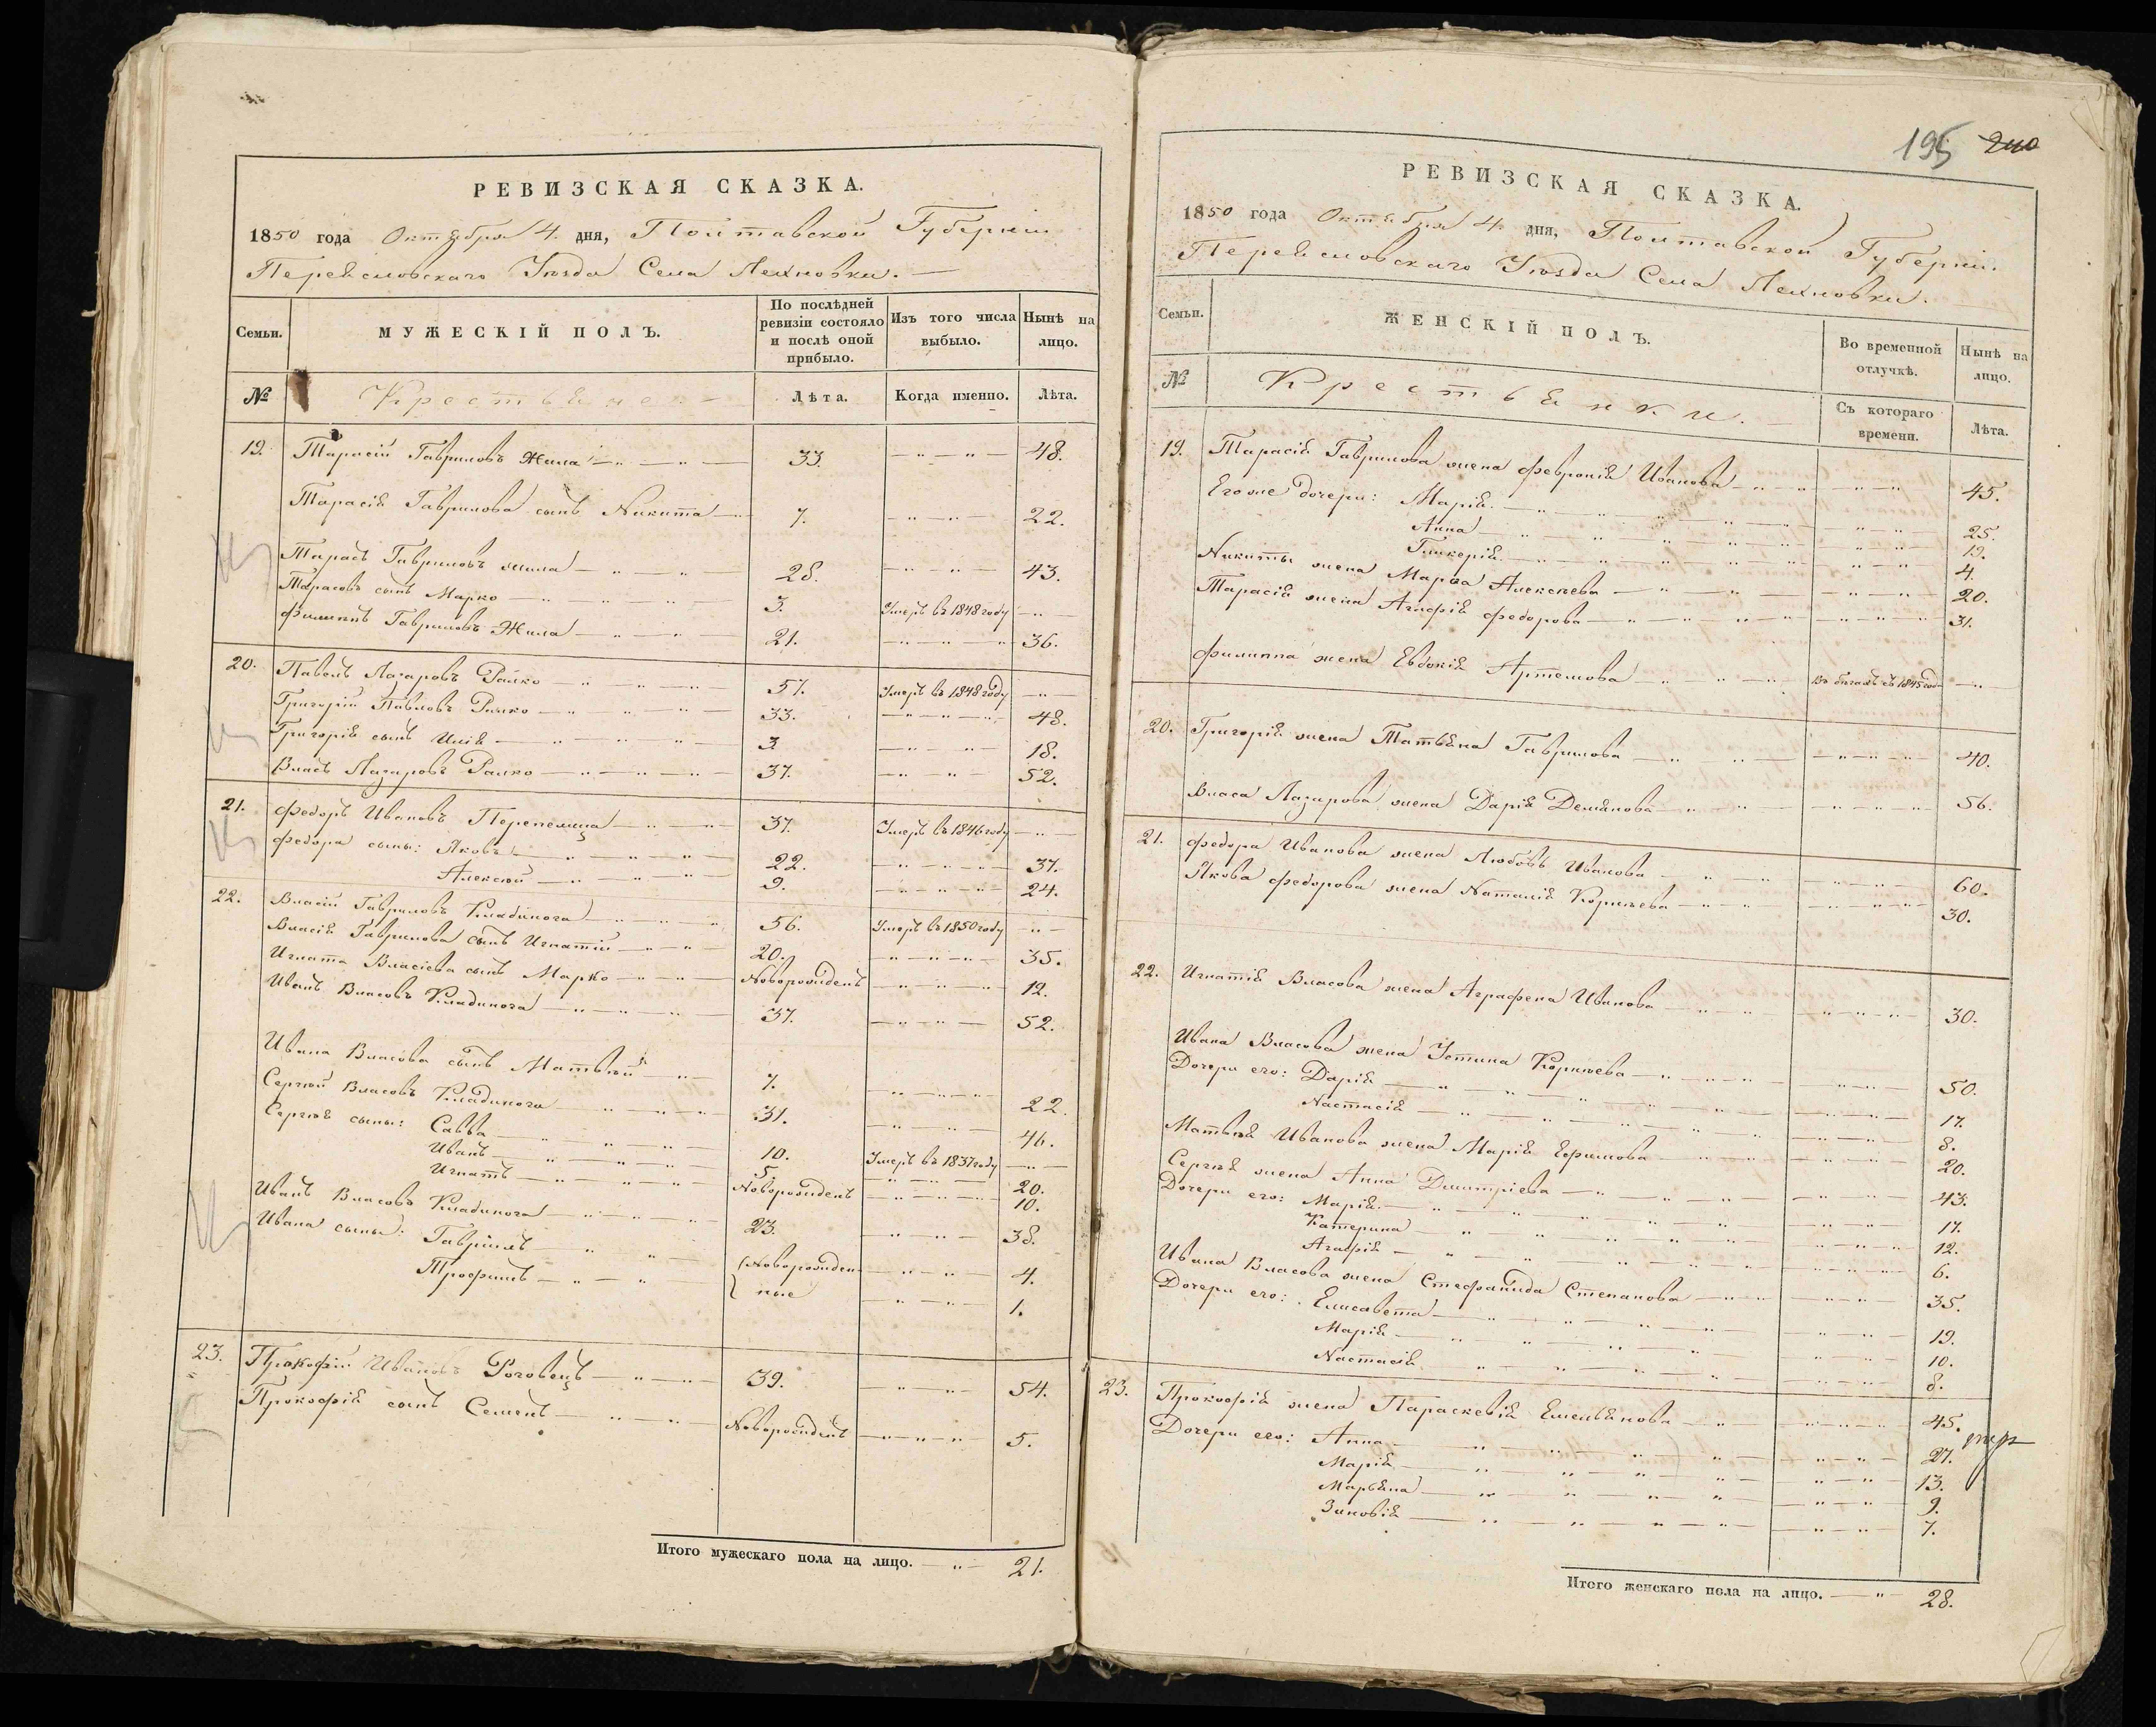 РЕВИЗСКАЯ СКАЗКА.
1850 года Октября 4. дня, Полтавской Губерніи
Переясловскаго Уѣзда Села Лехновки.
Семьи.
МУЖЕСКІЙ ПОЛЪ.
По послѣдней ревизіи состояло и послѣ оной прибыло.
Изъ того числа выбыло.
Нынѣ на лицо.
№
Крестьяне.
Лѣта.
Когда именно.
Лѣта.
19. Тарасій Гавриловъ Жила 33. 48.
Тарасія Гаврилова сынъ Никита 7. 22.
Тарасъ Гавриловъ Жила 28. 43.
Тарасовъ сынъ Марко 3. Умеръ въ 1848 году
Филиппъ Гавриловъ Жила 21. 36.
20. Павелъ Лазаровъ Ралко 57. Умеръ въ 1848 году
Григорій Павловъ Ралко 33. 48.
Григорія сынъ Илія 3 18.
Власъ Лазаровъ Ралко 37. 52.
21. Федоръ Ивановъ Перепелица 37. Умеръ въ 1846 году
Федора сыны: Яковъ 22. 37.
Алексѣй 9. 24.
22. Власій Гавриловъ Кладинога 56. Умеръ въ 1850 году
Власія Гаврилова сынъ Игнатій 20. 35.
Игната Власіева сынъ Марко Новорожденъ 12.
Иванъ Власовъ Кладинога 37. 52.
Ивана Власова сынъ Матвѣй 7. 22.
Сергѣй Власовъ Кладинога 31. 46.
Сергѣя сыны: Савва 10. Умеръ въ 1837 году
Иванъ 5. 20.
Игнатъ Новорожденъ 10.
Иванъ Власовъ Кладинога 23. 38.
Ивана сыны: Гавріилъ Новорожден- 4.
Трофимъ ные 1.
23. Прокофій Ивановъ Роговецъ 39. 54.
Прокофія сынъ Семенъ Новорожденъ 5.
Итого мужескаго пола на лицо. 21.
195 240
РЕВИЗСКАЯ СКАЗКА.
1850 года Октября 4. дня, Полтавской Губерніи.
Переясловскаго Уѣзда Села Лехновки.
Семьи.
ЖЕНСКІЙ ПОЛЪ.
Во временной отлучкѣ.
Нынѣ на лицо.
№
Крестьянки.
Съ котораго времени.
Лѣта.
19. Тарасія Гаврилова жена Февронія Иванова 45.
Его же дочери: Марія 25.
Анна 12.
Гликерія 4.
Никиты жена Марѳа Алексѣева 20.
Тарасія жена Агафія Федорова 31.
Филиппа жена Евдокія Артемова Въ бѣгахъ съ 1845 года
20. Григорія жена Татьяна Гаврилова 40.
Власа Лазарова жена Дарія Демянова 56.
21. Федора Иванова жена Любовъ Иванова 60.
Якова Федорова жена Наталія Корнѣева 30.
22. Игнатія Власова жена Аграфена Иванова 30.
Ивана Власова жена Устина Корнѣева 50.
Дочери его: Дарія 17.
Настасія 8.
Матвѣя Иванова жена Марія Ефимова 20.
Сергѣя жена Анна Дмитріева 43.
Дочери его: Марія 17.
Катерина 12.
Агафія 6.
Ивана Власова жена Стефанида Степанова 35.
Дочери его: Елисавета 19.
Марія 10.
Настасія 8.
23. Прокофія жена Параскевія Емельянова 45.
Дочери его: Анна 27.
Марія 13.
Марьяна 9.
Зиновія 7.
Итого женскаго пола на лицо. 28.